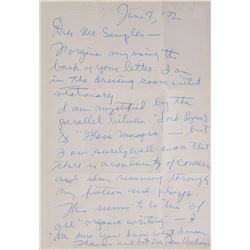 June 7, '72
Dear Mr. Semples —
Forgive my using the
back of your letter. I am
in the dressing room without
stationary.
I am mystified by the
parallel between "Lord Byron"
& "Glass Menagerie" — but
I am surely well aware that
there is a continuity of
and idea running through
my fiction and plays.
This seems to be true of
all "organic writing" — I
you know what I mean
Thanks and